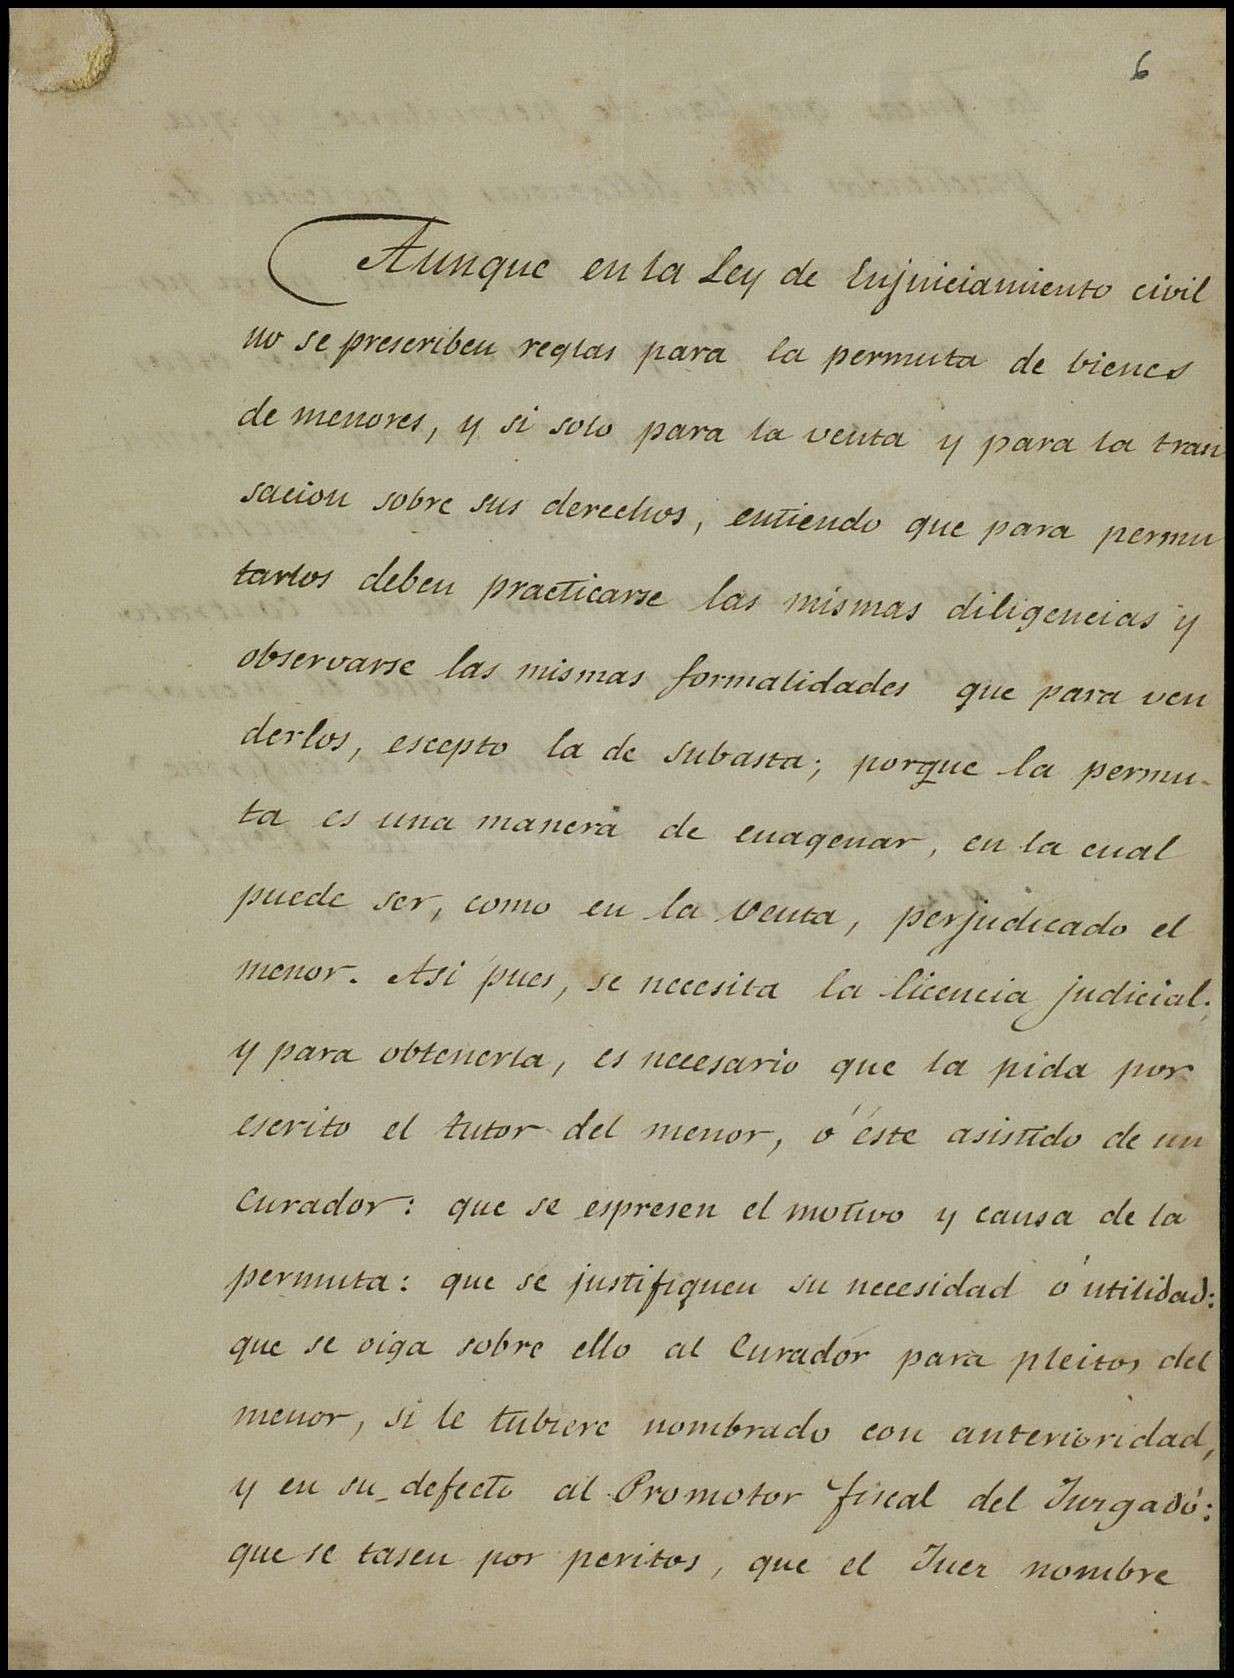 6
Aunque en la Ley de Enjuiciamiento civil
no se prescriben reglas para la permuta de bienes
de menores, y si solo para la venta y para la tran
sacion sobre sus derechos, entiendo que para permu
tarlos deben practicarse las mismas diligencias y
observarse las mismas formalidades que para ven
derlos, escepto la de subasta; porque la permu-
ta es una manera de enagenar, en la cual
puede ser, como en la venta, perjudicado el
menor. Asi pues, se necesita la licencia judicial;
y para obtenerla, es necesario que la pida por
escrito el tutor del menor, ó éste asistido de un
Curador: que se espresen el motivo y causa de la
permuta: que se justifiquen su necesidad ó utilidad:
que se oiga sobre ello al Curador para pleitos del
menor, si le tubiere nombrado con anterioridad,
y en su defecto al Promotor fiscal del Juzgado:
que se tasen por peritos, que el Juez nombre